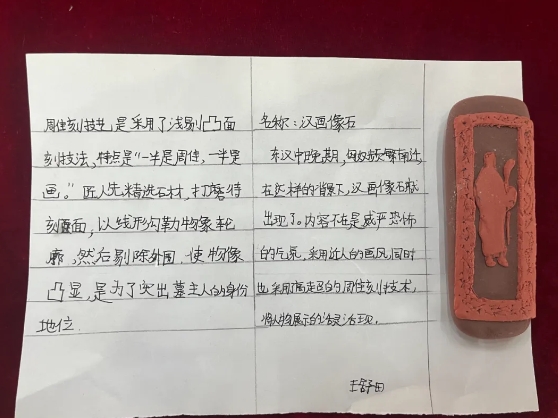 周佳刻技艺,是采用了浅剔凸面
刻技法,特点是"一半是周佳,一半是
画。"匠人先精选石材,打磨待
刻画面,以线形勾勒物象轮
廓,然后剔除外围,使物像
凸显,是为了突出墓主人的身份
地位.
名称:汉画像石
东汉中晚期,因奴族繁南迁,
在这样的背景下,汉画像石就
出现了。内容不在是威严恐怖
的气氛,采用近人的画风,同时
也采用的周佳刻技术,
将人物展示的活灵活现.